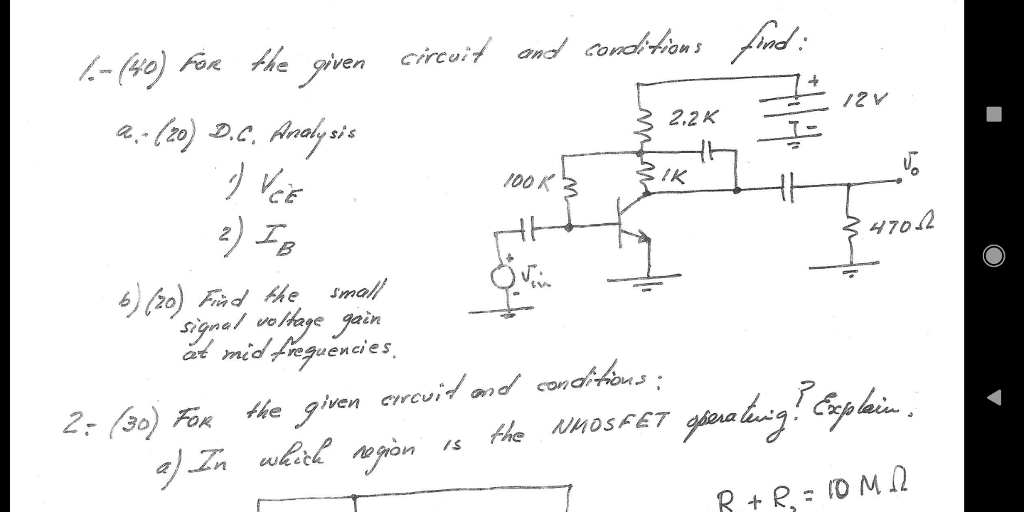 1.- (40) FOR the given circuit and conditions find:
a.- (20) D.C. Analysis
1) VCE
2) IB
b) (20) Find the small
signal voltage gain
at mid frequencies.
2.2K
+
12V
-
100K
1K
vo
470Ω
+
vin
-
2.- (30) FOR the given circuit and conditions:
a) In which region is the NMOSFET operating? Explain.
R + R, = 10 MΩ